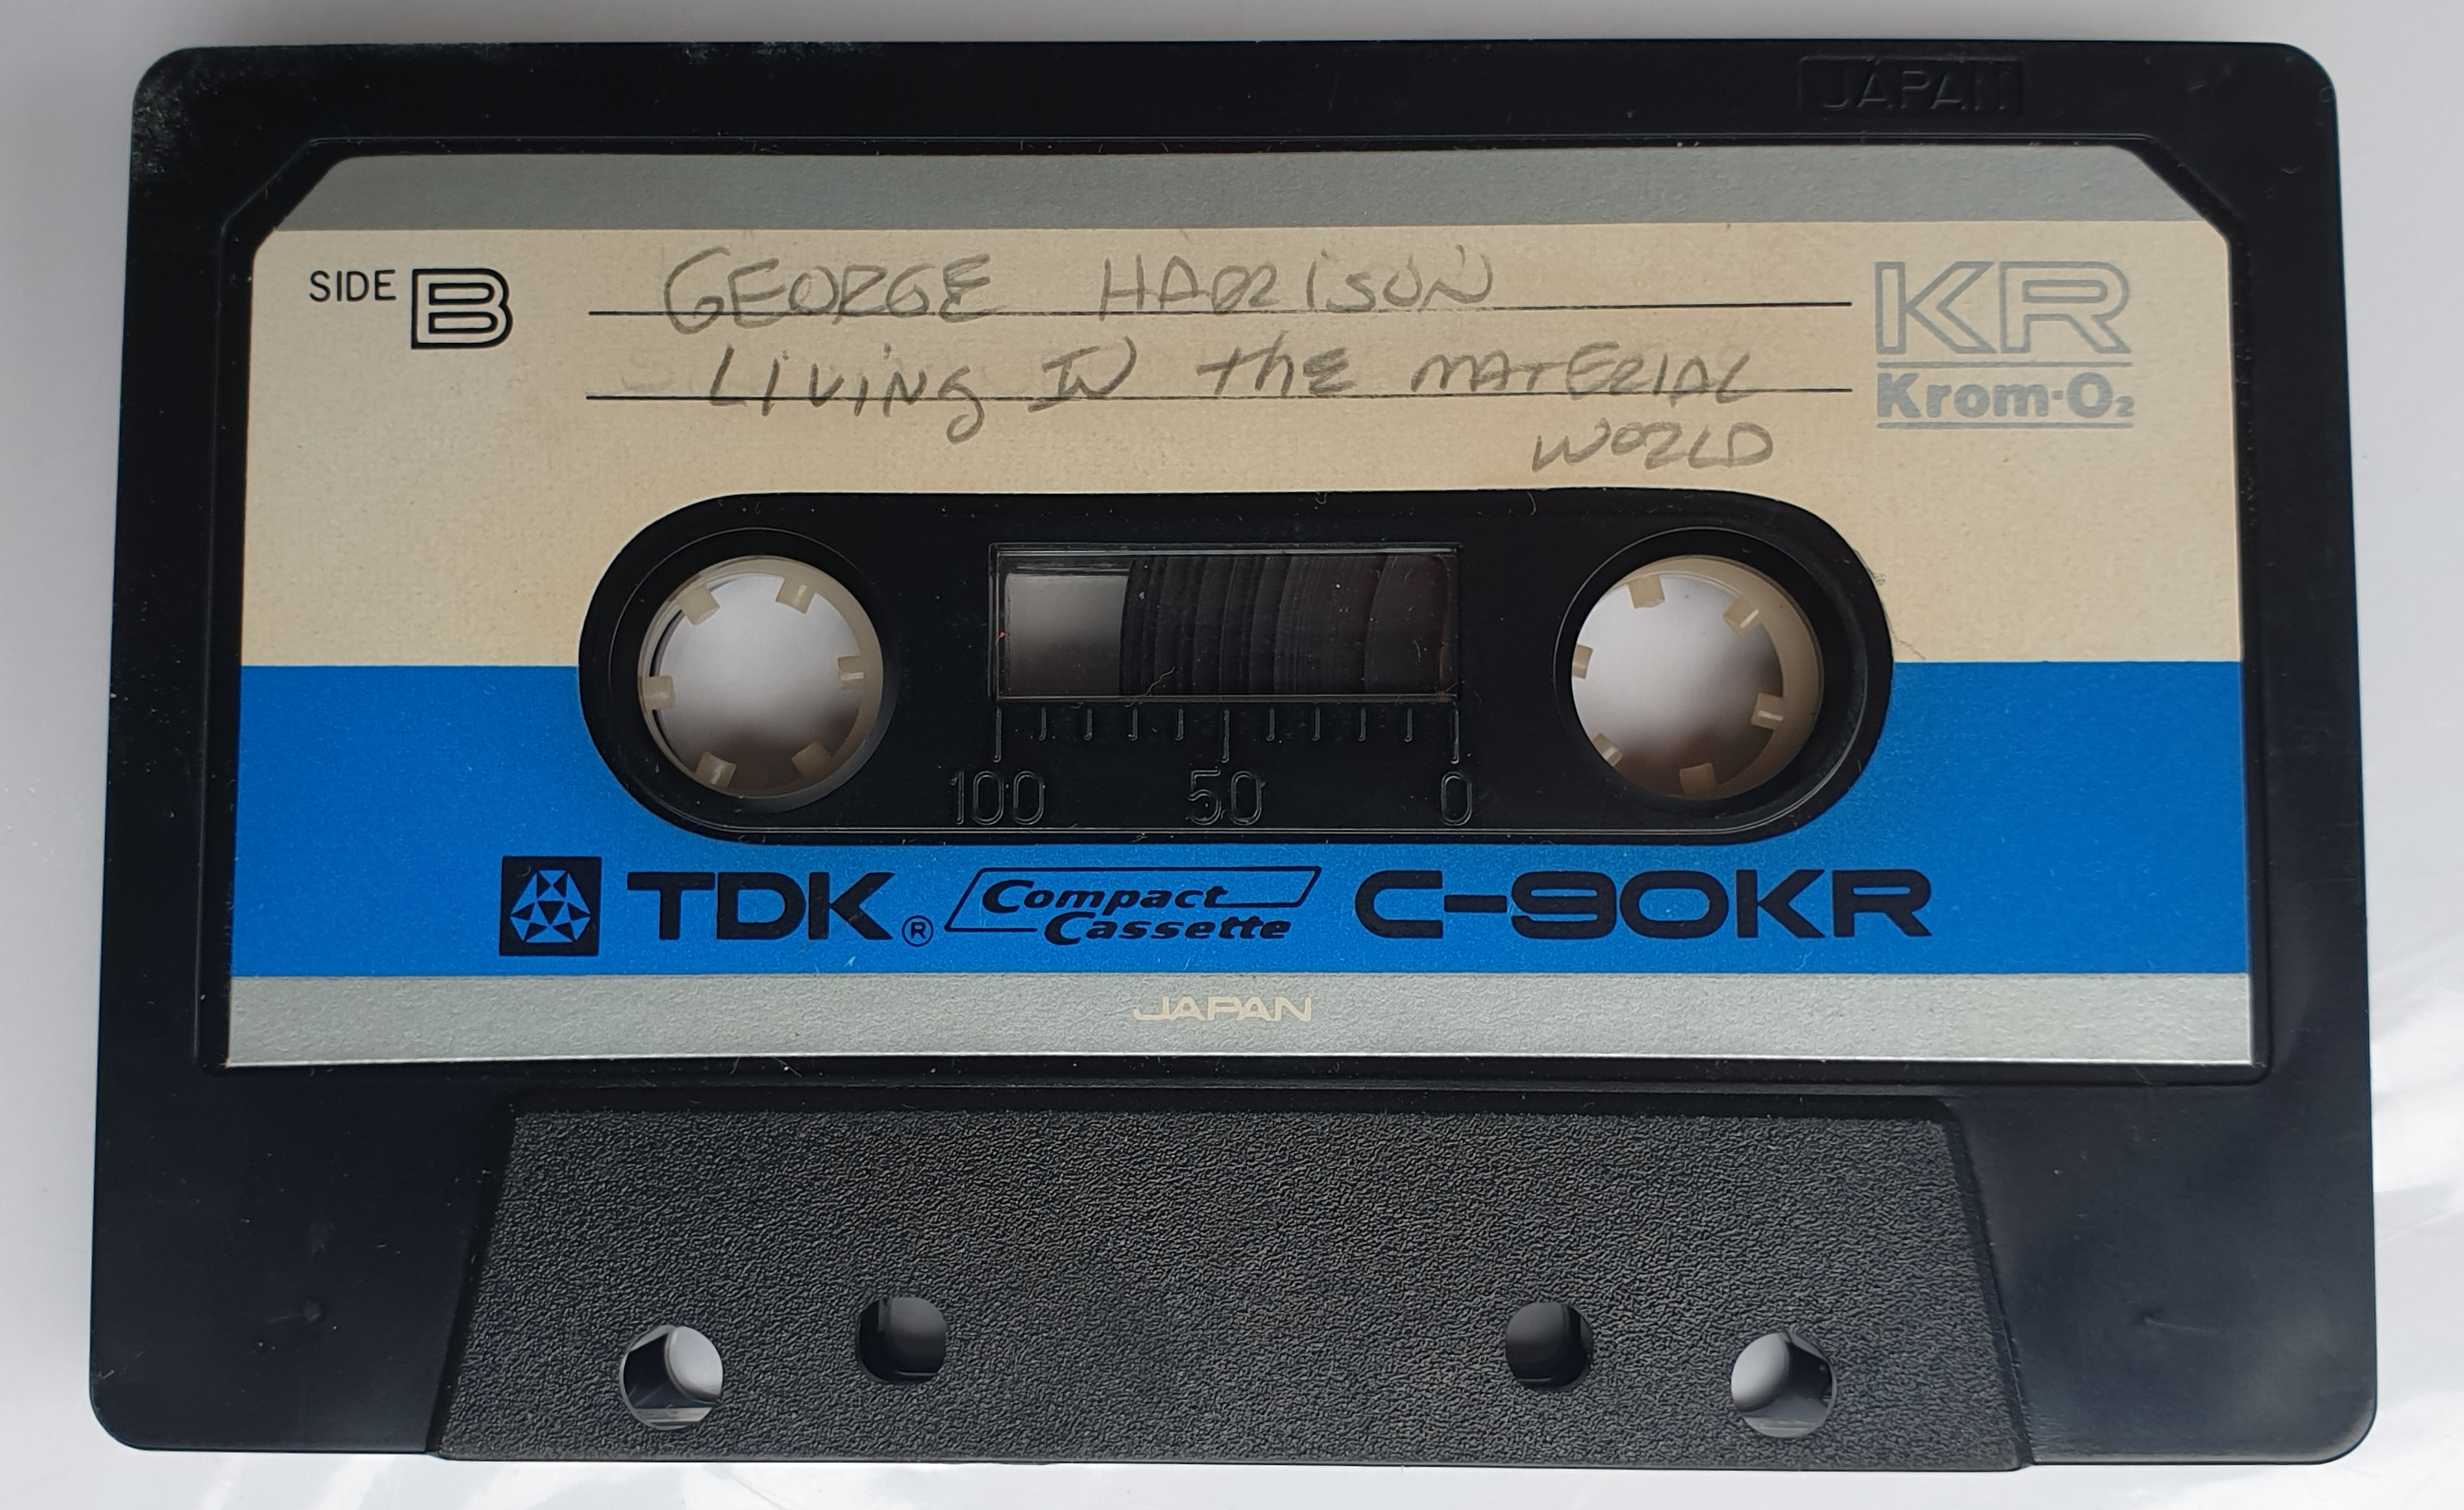 JAPAN
SIDE B
GEORGE HARRISON
LiViNg IN the MATERIAL
WORLD
KR
Krom-O₂
100 50 0
TDK® Compact Cassette C-90KR
JAPAN